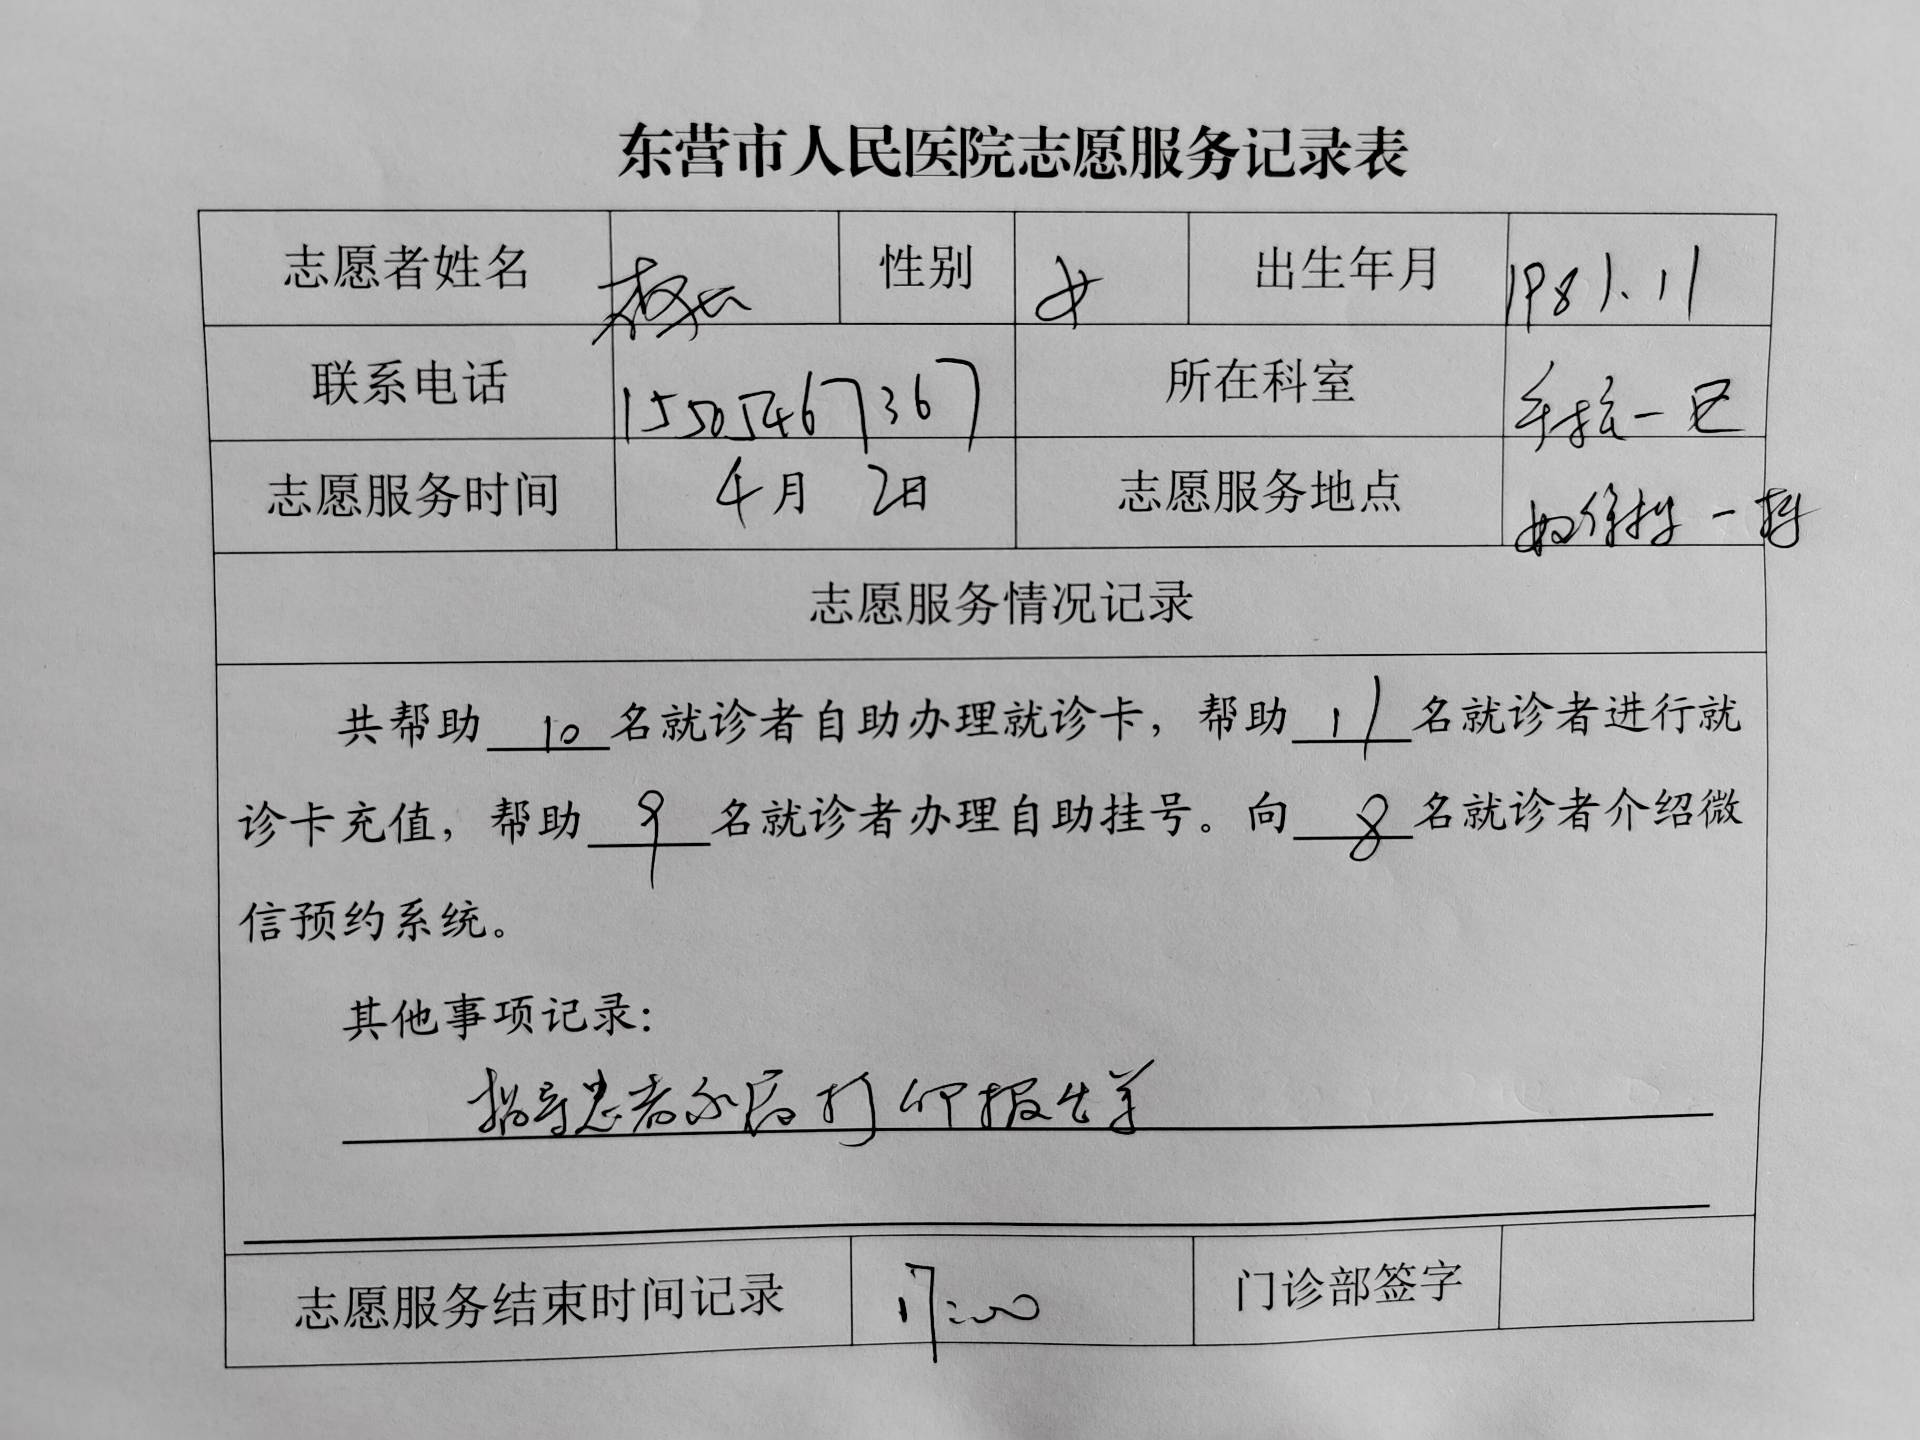 东营市人民医院志愿服务记录表
志愿者姓名 性别 女 出生年月 1981.11
联系电话 15505467367 所在科室
志愿服务时间 4月 2日 志愿服务地点
志愿服务情况记录
共帮助 10 名就诊者自助办理就诊卡，帮助 11 名就诊者进行就
诊卡充值，帮助 9 名就诊者办理自助挂号。向 8 名就诊者介绍微
信预约系统。
其他事项记录：
指导患者 打印报告单
志愿服务结束时间记录 17:00 门诊部签字